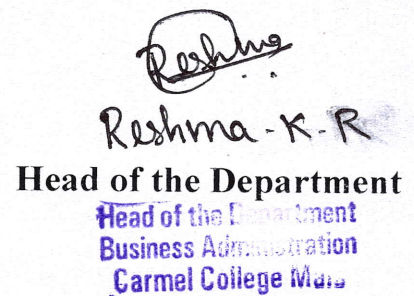 Reshma
Reshma - K - R
Head of the Department
Head of the Department
Business Administration
Carmel College Mala